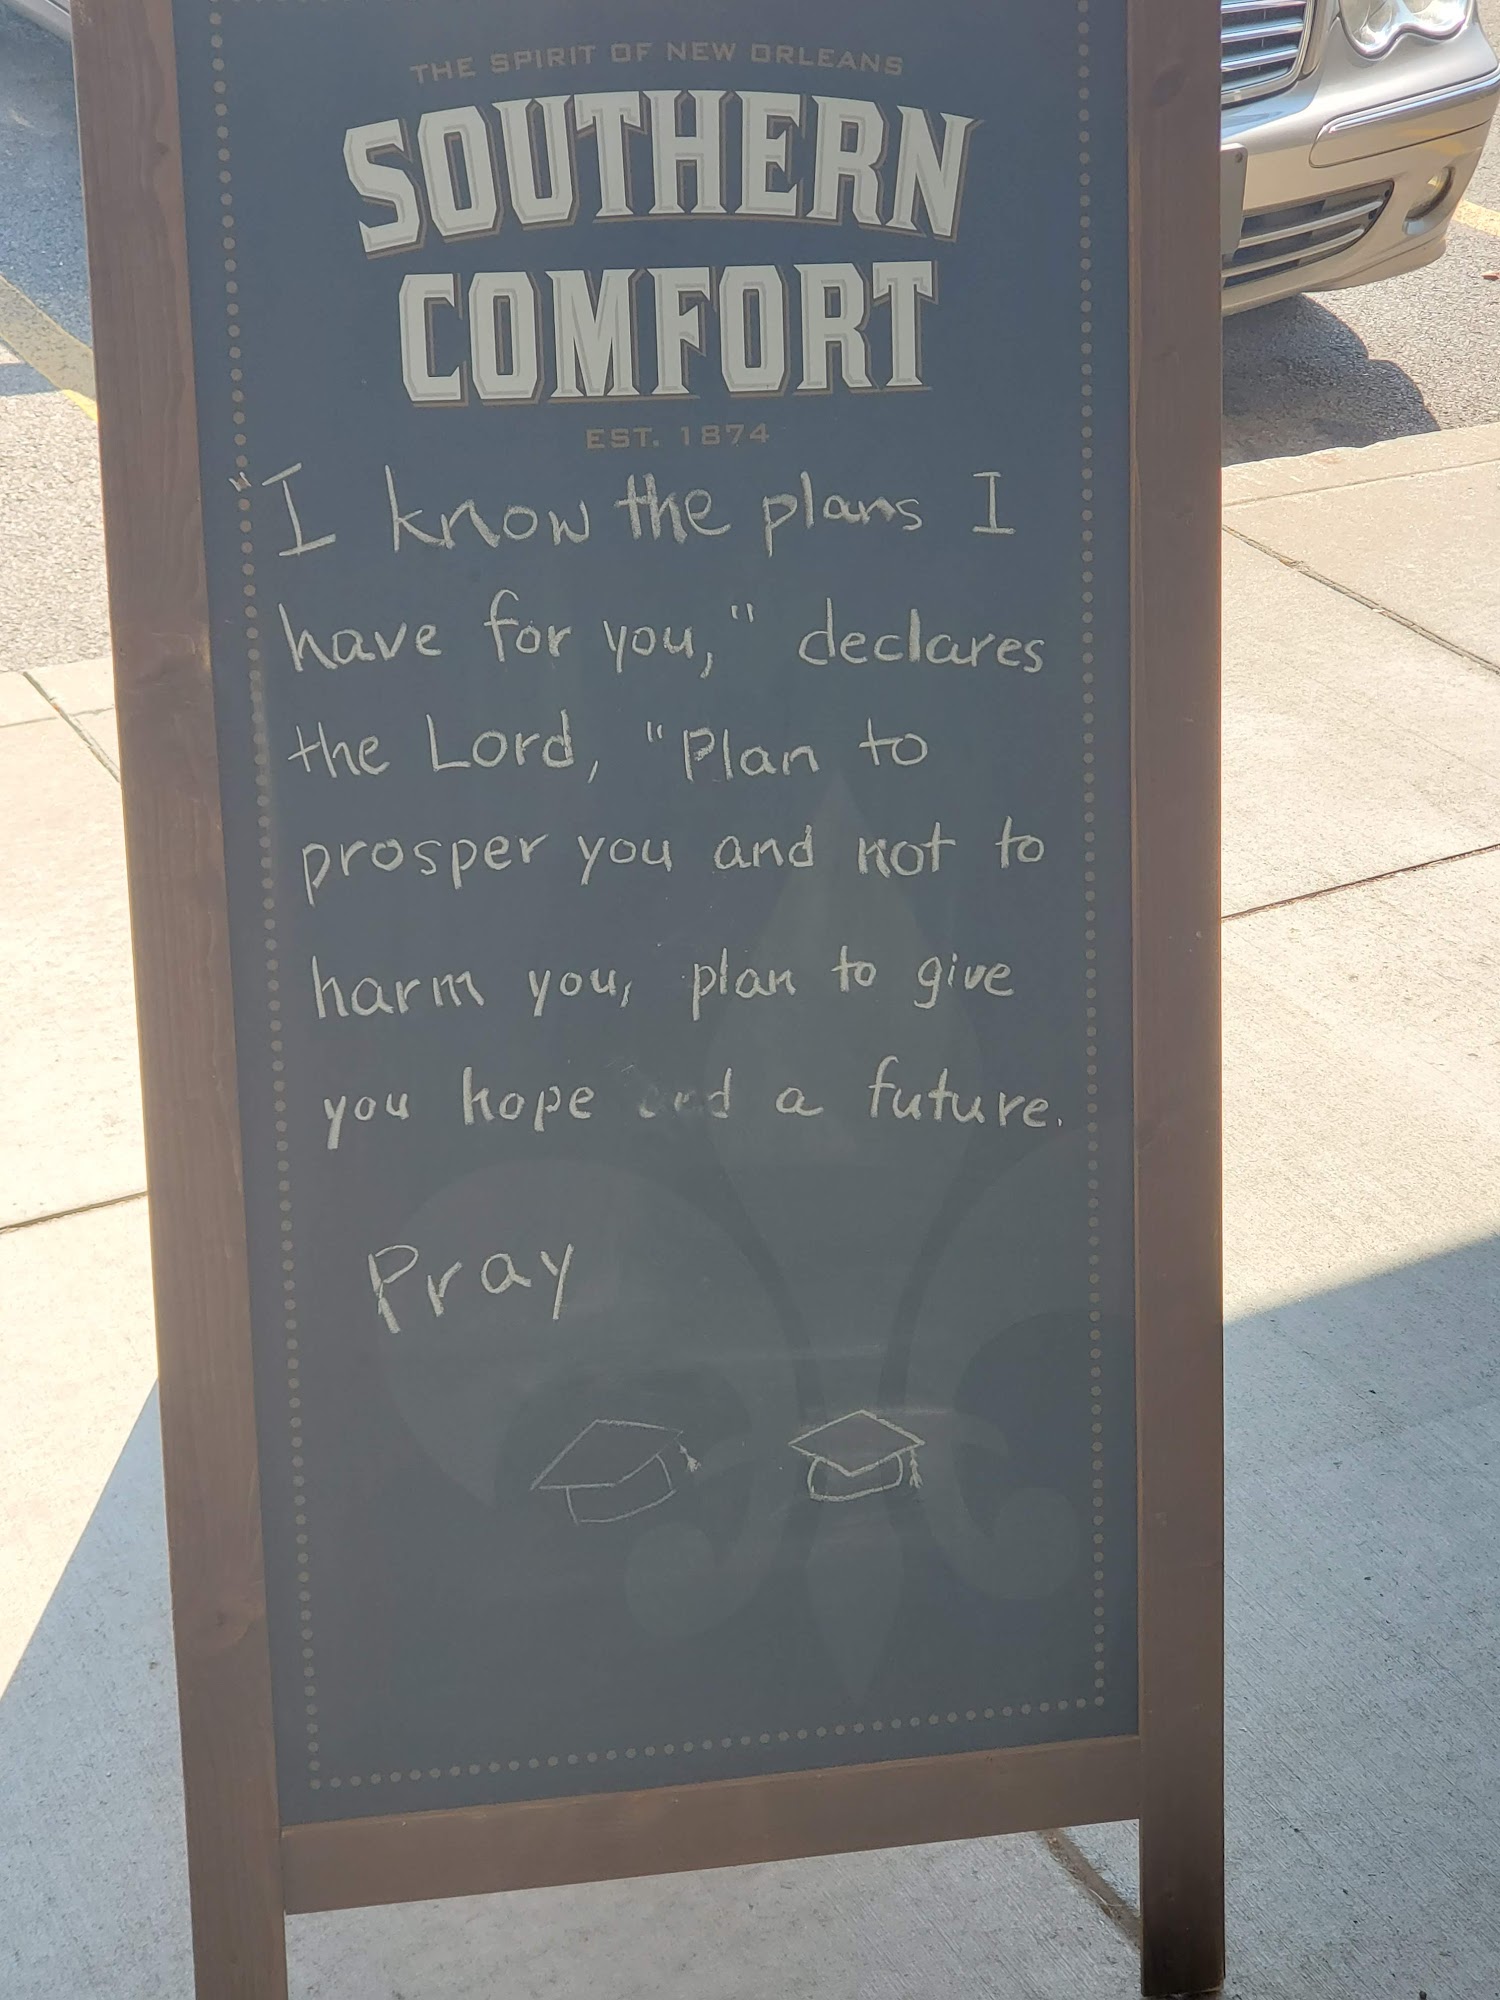 THE SPIRIT OF NEW ORLEANS
SOUTHERN
COMFORT
EST. 1874
"I know the plans I
have for you," declares
the Lord, "Plan to
prosper you and not to
harm you, plan to give
you hope and a future.
Pray